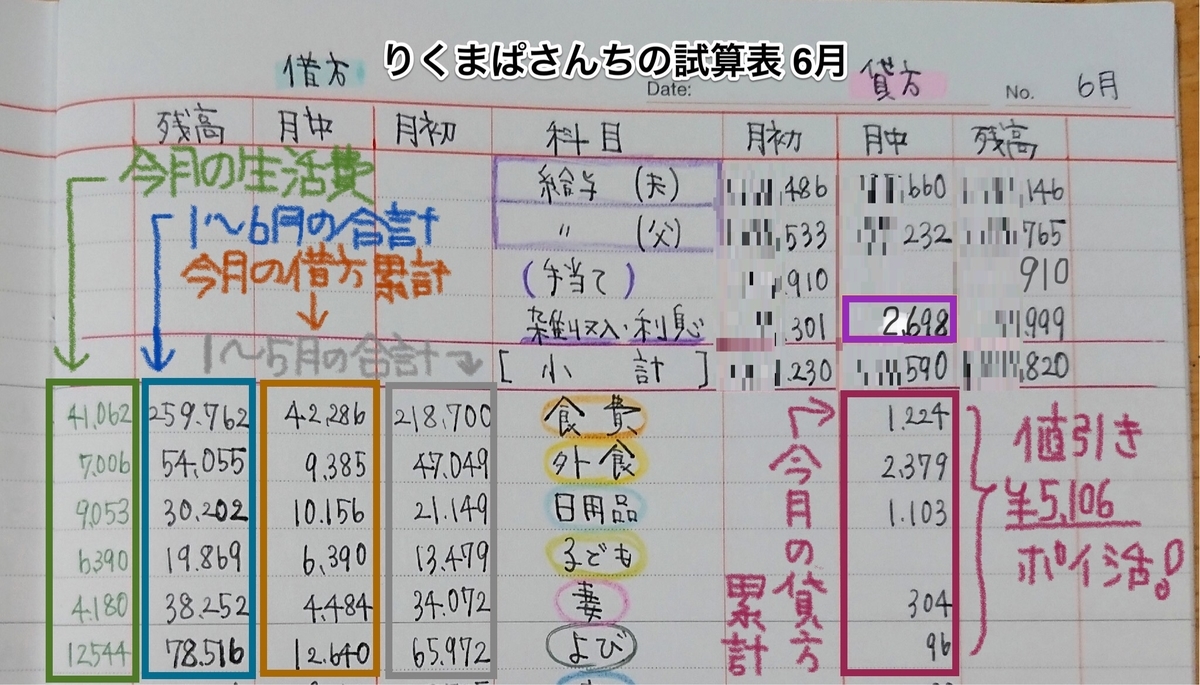 りくまぱさんちの試算表 6月
借方 貸方
Date: No. 6月
残高 月中 月初 科目 月初 月中 残高
今月の生活費
1〜6月の合計
今月の借方累計
1〜5月の合計
給与 (夫) ,486 660 ,146
〃 (父) ,533 232 765
(手当て) ,910 910
雑収入・利息 .301 2,698 999
[小計] .230 590 ,820
41,062 259.762 42,286 218,700 食費 1.224
7.006 54.055 9,385 47,049 外食 2.379
9,053 30.202 10.156 21.149 日用品 1.103
6390 19.869 6,390 13.479 子ども
4.180 38.252 4.484 34.072 妻 304
12544 78.516 12.640 65.972 よび 96
今月の貸方累計
値引き
¥5,106
ポイ活!